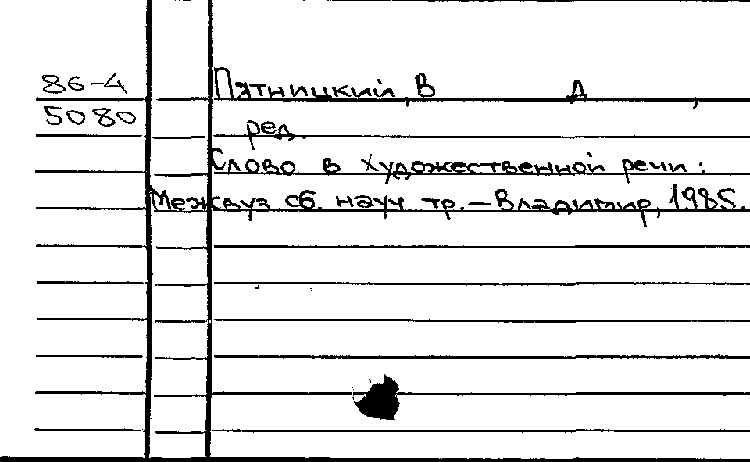 86-4 Пятницкий, В Д ,
5080 ред.
Слово в художественной речи:
Межвуз сб. науч тр.-Владимир, 1985.